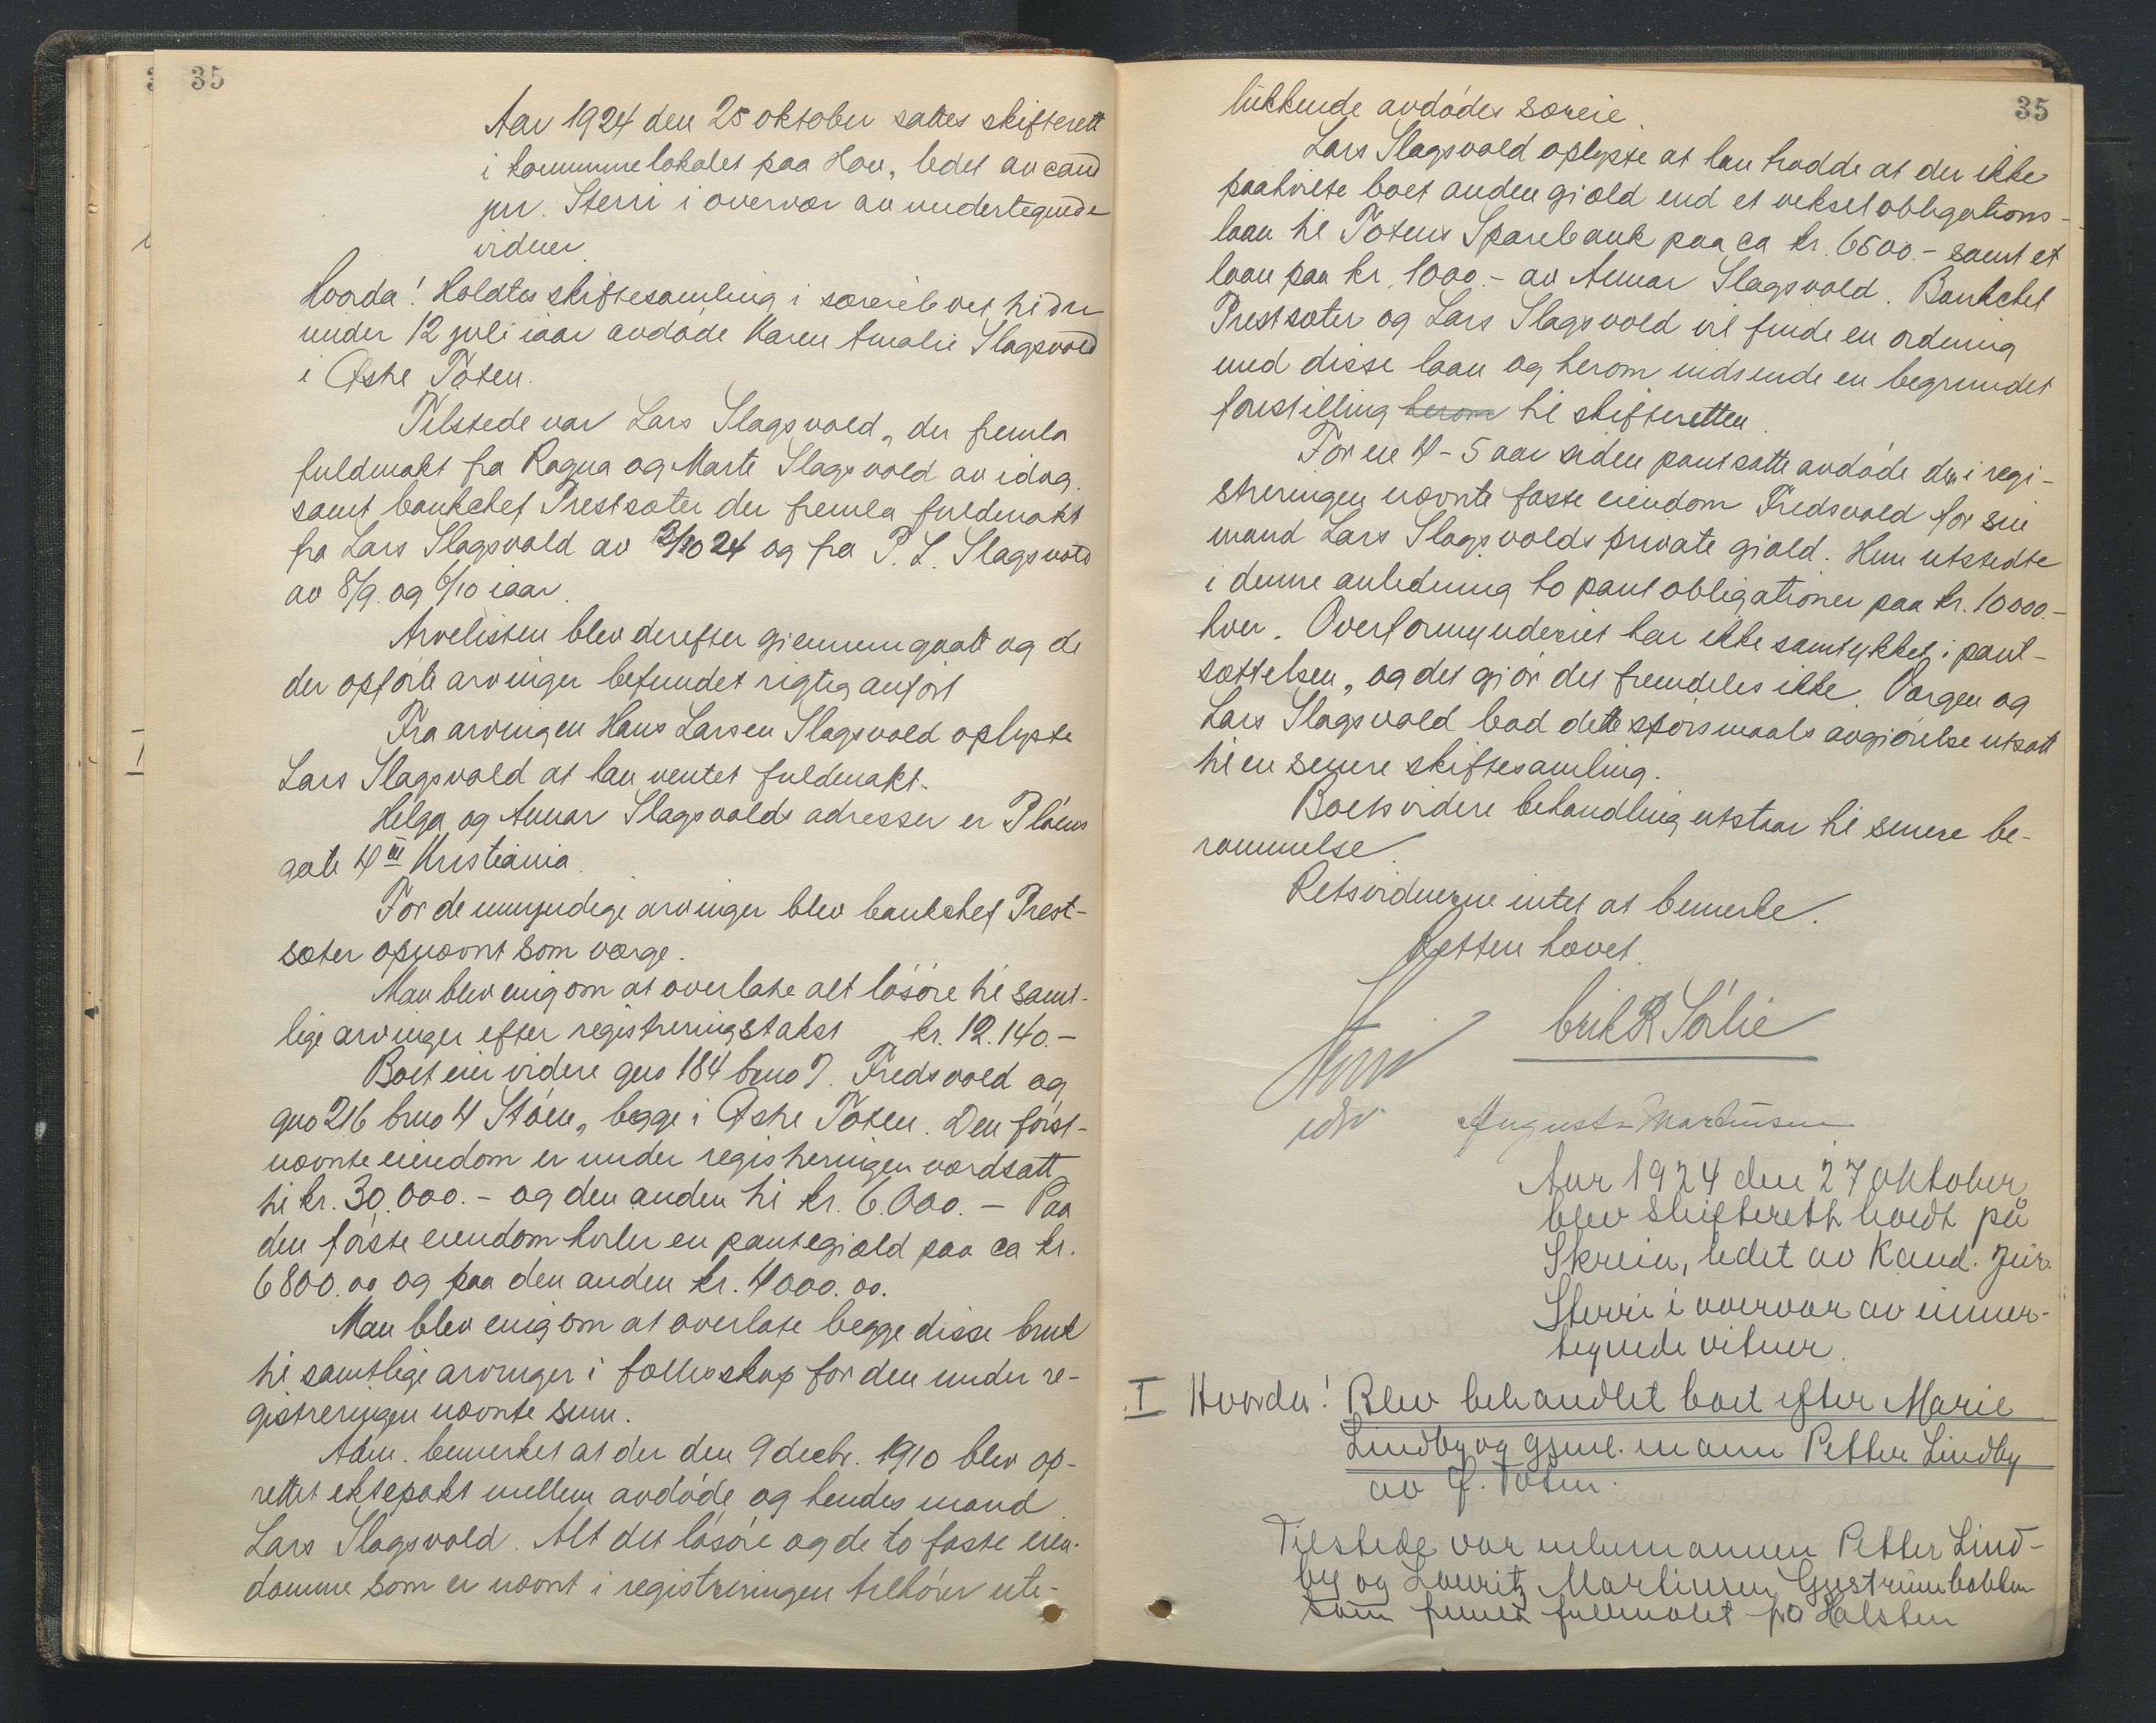 35
Aar 1924 den 25 oktober sattes skifterett
i kommunelokalet paa Hov, ledet av cand
jur. Sterri i overvær av undertegnede
vidner.
Hvorda! Holdtes skiftesamling i særeieboet til den
under 12 juli iaar avdøde Karen Amalie Slagsvold
i Østre Toten.
Tilstede var Lars Slagsvold, der fremla
fuldmakt fra Ragna og Marte Slagsvold av idag.
samt bankchef Prestsæter der fremla fuldmakt
fra Lars Slagsvold av 2/10 24 og fra P. L. Slagsvold
av 8/9. og 6/10 iaar.
Arvelisten blev derefter gjennemgaatt og de
der opførte arvinger befundet rigtig anført
Fra arvingen Hans Larsen Slagsvold oplyste
Lars Slagsvold at han ventet fuldmakt.
Helga og Annar Slagsvolds adresser er Pløens
gate 4 III Kristiania.
For de umyndige arvinger blev bankchef Prest-
sæter opnævnt som værge.
Man blev enig om at overlate alt løsøre til samt-
lige arvinger efter registreringstakst kr. 12.140.-
Boet eier videre gno 184 bno 7. Fredsvold og
gno 216 bno 4 Støen, begge i Østre Toten. Den først-
nævnte eiendom er under registreringen værdsatt
til kr. 30.000.- og den anden til kr. 6.000.- Paa
den første eiendom hviler en pantegjæld paa ca kr.
6800.00 og paa den anden kr. 4000.00.
Man blev enig om at overlate begge disse bruk
til samtlige arvinger i fællesskap for den under re-
gistreringen nævnte sum.
Adm. bemerket at der den 9 decbr. 1910 blev op-
rettet ektepakt mellem avdøde og hendes mand
Lars Slagsvold. Alt det løsøre og de to faste eien-
domme som er nævnt i registreringen tilhører ute-
35
lukkende avdødes særeie.
Lars Slagsvold oplyste at han trodde at der ikke
paahvilte boet anden gjæld end et vekselobligations-
laan til Totens Sparebank paa ca kr. 6500.- samt et
laan paa kr. 1000.- av Annar Slagsvold. Bankchef
Prestsæter og Lars Slagsvold vil finde en ordning
med disse laan og herom indsende en begrundet
forestilling herom til skifteretten.
For en 4-5 aar siden pantsatte avdøde den i regi-
streringen nævnte faste eiendom Fredsvold for sin
mand Lars Slagsvolds private gjæld. Hun utstedte
i denne anledning to pantobligationer paa kr. 10000.-
hver. Overformynderiet har ikke samtykket i pant-
sættelsen, og det gjør det fremdeles ikke. Værgen og
Lars Slagsvold bad dette spørsmaals avgjørelse utsatt
til en senere skiftesamling.
Boets videre behandling utstaar til senere be-
rammelse.
Retsvidnerne intet at bemerke.
Retten hævet.
Erik R Sørlie
Sterri
August Martinsen
Aar 1924 den 27 oktober
blev skifterett holdt på
Skreia, ledet av Kand. jur.
Sterri i overvær av unner-
tegnede vitner.
I Hvorda! Blev behandlet boet efter Marie
Lindby og gjenl. mann Petter Lindby
av Ø. Toten.
Tilstede var enkemannen Petter Lind-
by og Lauritz Martinsen
som fremla fullmakt fra Halsten